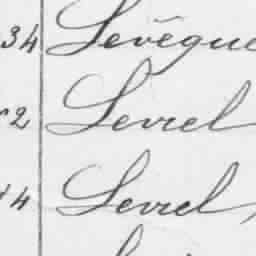 34 Levêque
2 Levrel
4 Levrel